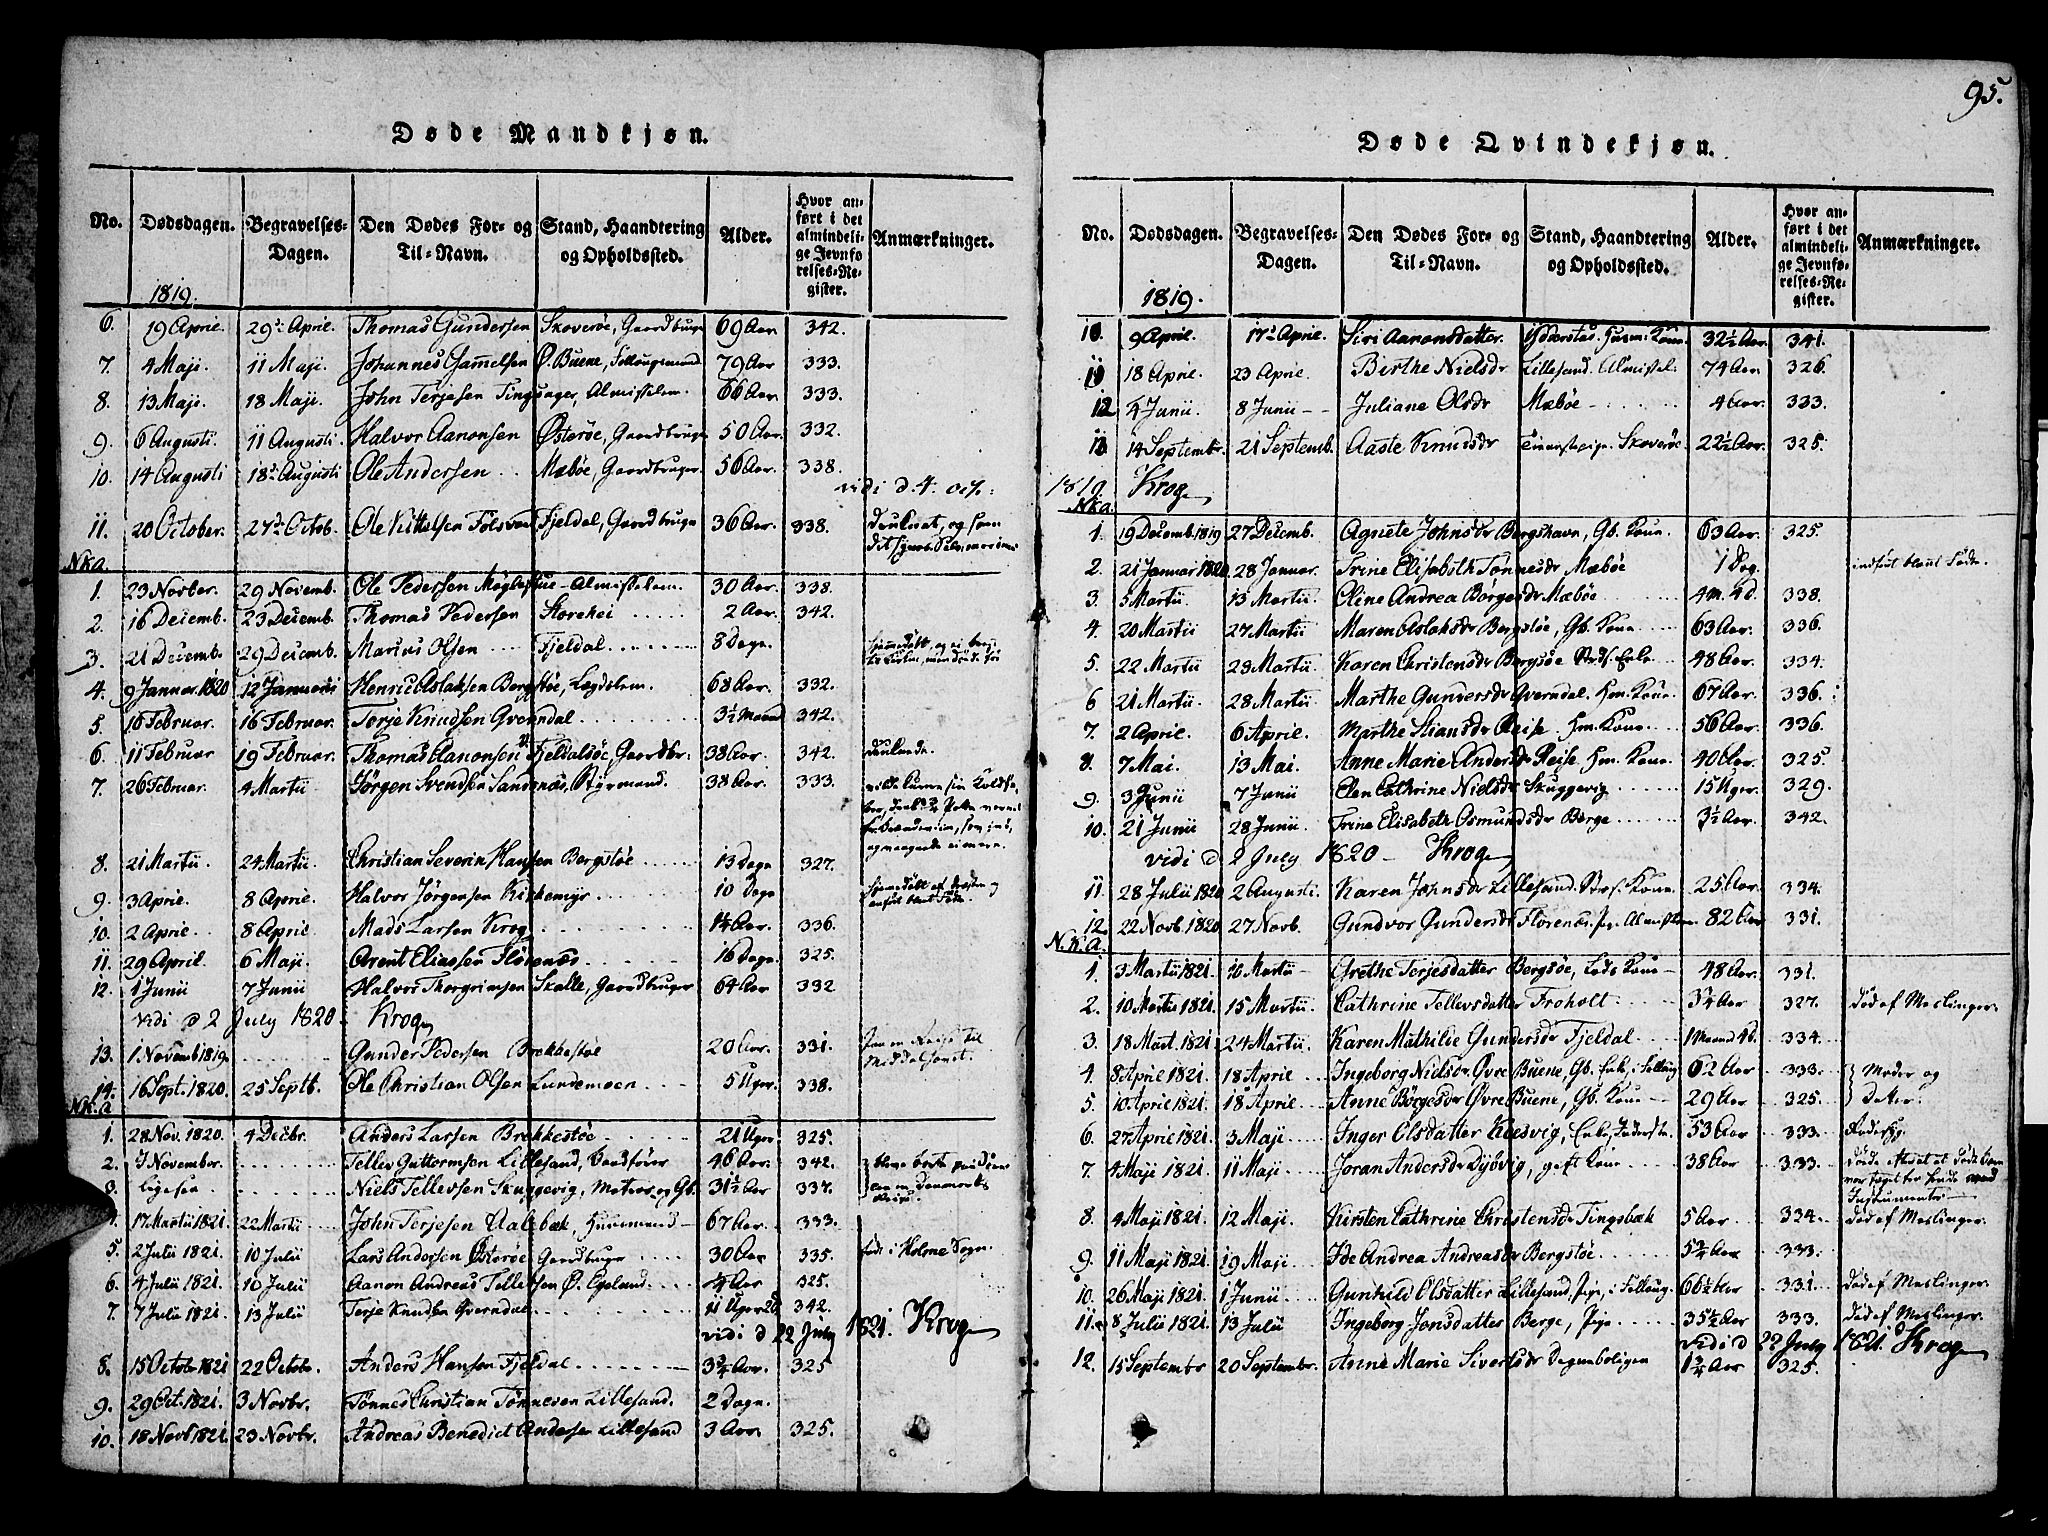 95.
Døde Mandkjøn.
No. Dødsdagen. Begravelses-Dagen. Den Dødes For- og Til-Navn. Stand, Haandtering og Opholdssted. Alder. Hvor anført i det almindelige Jevnførelses-Register. Anmærkninger.
1819.
6. 19 April. 29de April. Thomas Gundersen Skoverøe, Gaardbruger 69 Aar 342.
7. 4 Maji. 11 Maji. Johannes Gamelsen Ø. Buene, 79 Aar 333.
8. 13 Maji. 18 Maji. John Terjesen Tingsager, Almisselem. 66 Aar. 333.
9. 6 Augusti 11 Augusti. Halvor Aanonsen Østerøe, Gaardbruger 50 Aar. 332.
10. 14 Augusti 18de Augusti Ole Andersen Mæbøe, Gaardbruger. 56 Aar. 338.
vidi d. 4. oct:
11. 20 October. 27de Octob. Ole Kittelsen Fjeldal, Gaardbruger 36 Aar. 338. druknet, og som
Nka.
1. 23 Novbr. 29 Novemb. Ole Pedersen Møglestue Almisselem. 30 Aar 338.
2. 16 Decemb. 23 Decemb. Thomas Pedersen Storehei 2 Aar. 342.
3. 21 Decemb. 29 Decemb. Marius Olsen Fjeldal 8 Dage. hjemmedøbt, og ei
4. 9 Januar. 1820 12 Januarii Henric Aslaksen Bergstøe, Lægdslem. 68 Aar. 332.
5. 16 Februar. 16 Februar. Terje Knudsen Qverndal 3½ Maaned 342.
6. 11 Februar 19 Februar. Thomas Aanonsen Fjeldalsøe, Gaardbr. 38 Aar. 342. druknede.
7. 26 Februar. 4 Martii Jørgen Svendsen Sandnæs, Styrmand. 38 Aar. 333.
8. 21 Martii 24 Martii. Christian Severin Hansen Bergstøe 13 Dage 327.
9. 3 April. 8 April. Halvor Jørgensen Kirkemyr 10 Dage
10. 2 April. 8 April. Mads Larsen Krog 14 Aar. 336.
11. 29 April. 6 Maji. Arent Eliassen Florenæs 16 Dage 325.
12. 1 Junii 7 Junii Halvor Thorgrimsen Skalle, Gaardbruger 64 Aar 332
Vidi d 2 July 1820. Krog
13. 1 Novemb 1819. Gunder Pedersen Brekkestøe 20 Aar. 331. Paa en Reise til Middelhavet.
14. 16 Sept. 1820. 25 Septb. Ole Christian Olsen Lundemoen 5 Uger. 338.
Nk.a
1. 28 Nov. 1820. 4 Decbr. Anders Larsen Brekkestøe 21 Uger 325.
2. 7 November. Tellev Guttormsen Lillesand, 46 Aar. 342. bleve borte paa
3. ligesaa Niels Tellevsen Skuggevig, Matros og Gb. 31½ Aar 337. en Danmarks Reise.
4. 17 Martii 1821. 22 Martii John Terjesen Aalebæk, Huusmand 67 Aar 333.
5. 2 Julii 1821. 10 Julii Lars Andersen Østerøe Gaardbruger 30 Aar 335. født i Holme Sogn.
6. 4 Julii 1821. 10 Julii Aanon Andreas Tellefsen Ø. Egeland ¼ Aar 325.
7. 7 Julii 1821. 13 Julii Terje Knudsen Qverndal 11 Uger 2d 342.
vidi d 22 July 1821. Krog
8. 15 Octobr 1821 22 Octobr. Anders Hansen Fjeldal 3¾ Aar. 325
9. 29 Oct. 1821. 3 Novbr. Tønnes Christian Tønnesen Lillesand. 2 Dage.
10. 18 Novb 1821. 23 Novbr. Andreas Benedict Andersen Lillesand 3 Aar 325.
Døde Qvindekjøn.
No. Dødsdagen. Begravelses-Dagen. Den Dødes For- og Til-Navn. Stand, Haandtering og Opholdssted. Alder. Hvor anført i det almindelige Jevnførelses-Register. Anmærkninger.
1819.
10. 9 April. 17de April. Siri Aanonsdatter Huusm: Kone. 32½ Aar. 341.
11 18 April. 23 April. Birthe Nielsdr Lillesand. Almissel. 74 Aar 326.
12 4 Junii 8 Junii Juliane Olsdr Mæbøe 4 Aar. 333.
13 14 Septembr. 21 Septemb. Aaste Knudsdr Tjenestepige. Skoverøe. 22½ Aar. 325.
1819. Krog
Nka.
1. 19 Decemb. 1819 27 Decemb. Agnete Johnsdr Bergshavn, Gb. Kone. 63 Aar. 325.
2. 21 Januar 1820 28 Januar. Trine Elisabeth Tønnesdr Mæbøe 1 Dag.
3. 5 Martii. 13 Martii Oline Andrea Børgesdr Mæbøe 4 m. 4 d. 338.
4. 20 Martii 27 Martii Maren Aslaksdr Bergstøe, Gb. Kone 63 Aar. 336.
5. 22 Martii 29 Martii Karen Christensdr Bergsøe Enke 48 Aar. 334.
6 21 Martii 28 Martii Marthe Gundersdr Qverndal. Hm. Kone 67 Aar 336.
7. 2 April. 6 April. Marthe Stiansdr Reise Hm. Kone 56 Aar 336.
8. 7 Mai. 13 Mai. Anne Marie Andersdr Reise, Hm. Kone. 40 Aar. 325.
9. 3 Junii 7 Junii Elen Cathrine Nielsdr Skuggevig 15 Uger. 329.
10. 21 Junii 28 Junii. Trine Elisabeth Osmundsdr Berge 3½ Aar. 342.
vidi d 2 July 1820 Krog
11. 28 Julii 1820 2 Augusti. Karen Johnsdr Lillesand. Kone. 25 Aar. 334.
12. 22 Novb. 1820 27 Novb. Gundvor Gundersdr Florenæs, Almisselem 82 Aar 331.
N.k.a.
1. 3 Martii 1821. 10 Martii Grethe Terjesdatter Bergsøe, Lods Kone 48 Aar. 331.
2. 10 Martii 1821. 15 Martii Cathrine Tellevsdatter Froholt 3¾ Aar 327. Død af Meslinger.
3. 18 Mart. 1821. 24 Martii. Karen Mathilde Gundersdr Fjeldal 1 Maaned 4 d. 334.
4. 8 April 1821. 18 April. Ingeborg Nielsdr Øvre Buene, Gb. Enke, 62 Aar 333. Moder og
5. 10 April 1821. 18 April. Anne Børgesdr Øvre Buene, Gb. Kone 29 Aar 325. Datter.
6. 27 April 1821. 3 Maji Inger Olsdatter Keesvig, Enke, 53 Aar 333.
7. 4 Maji 1821. 11 Maji. Joran Andersdr Dyøvig, gift Kone 38 Aar 333.
Instrumenter
8. 4 Maji 1821. 12 Maji. Kirsten Cathrine Christensdr Tingsbæk 5 Aar 334. Død af Meslinger.
9. 11 Maji 1821. 19 Maji. Ide Andrea Andreasdr Bergstøe 5¾ Aar 333.
10. 26 Maji 1821. 1 Junii Gunhild Olsdatter Lillesand, Pige, 66½ Aar 331. Død af Meslinger.
11. 8 Julii 1821. 13 Julii Ingeborg Jonsdatter Berge, Pige 35¾ Aar 333. Død af Meslinger.
vidi d 22 July 1821. Krog
12. 15 Septembr 20 Septembr. Anne Marie Siversdr Degneboligen 1¾ Aar 325.